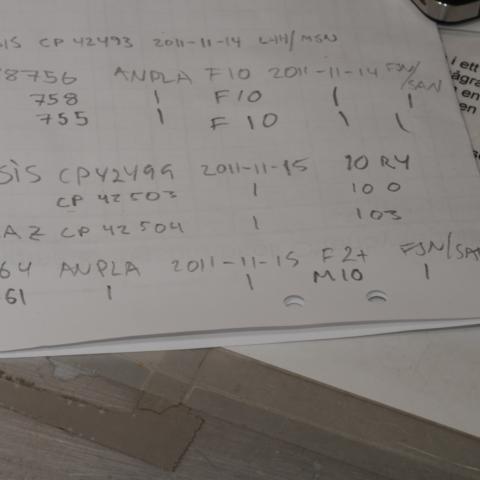 SIS CP 42493 2011-11-14 LHH/MSN
8756 ANPLA F10 2011-11-14 FJN/SAN
758 | F10 | |
755 | F 10 | |
SIS CP42499 2011-11-15 10 RY
CP 42503 | 10 0
AZ CP 42504 | 103
64 ANPLA 2011-11-15 F 2+ FJN/SAN
61 | | M10 |
i ett
ågra
en
en